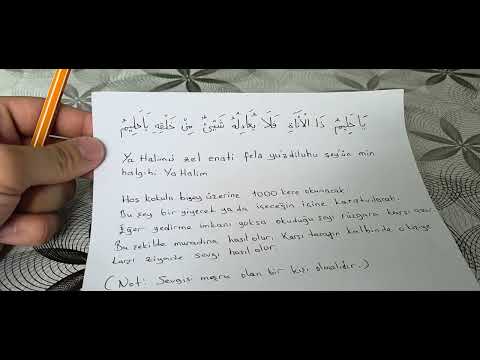 يَا حَلِيمُ ذَا الْأَنَاةِ فَلَا يُعَادِلُهُ شَيْئٌ مِنْ خَلْقِهِ يَا حَلِيمُ
Ya Halimü zel enati fela yuâdiluhu şey'ün min
halgıhi Ya Halim
Hoş kokulu bişey üzerine 1000 kere okunacak
Bu şey bir yiyecek ya da içeceğin içine karıştırılacak.
Eğer yedirme imkanı yoksa okuduğu şeyi rüzgara karşı
Bu şekilde muradına hasıl olur. Karşı tarafın kalbinde o kişiye
karşı ziyade sevgi hasıl olur.
(Not: Sevgisi meşru olan bir kişi olmalıdır.)